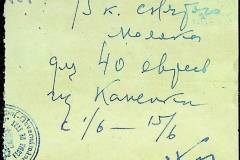 15 к. свѣжаго
молока
для 40 евреев
из Каменки
с 1/6 — 15/6